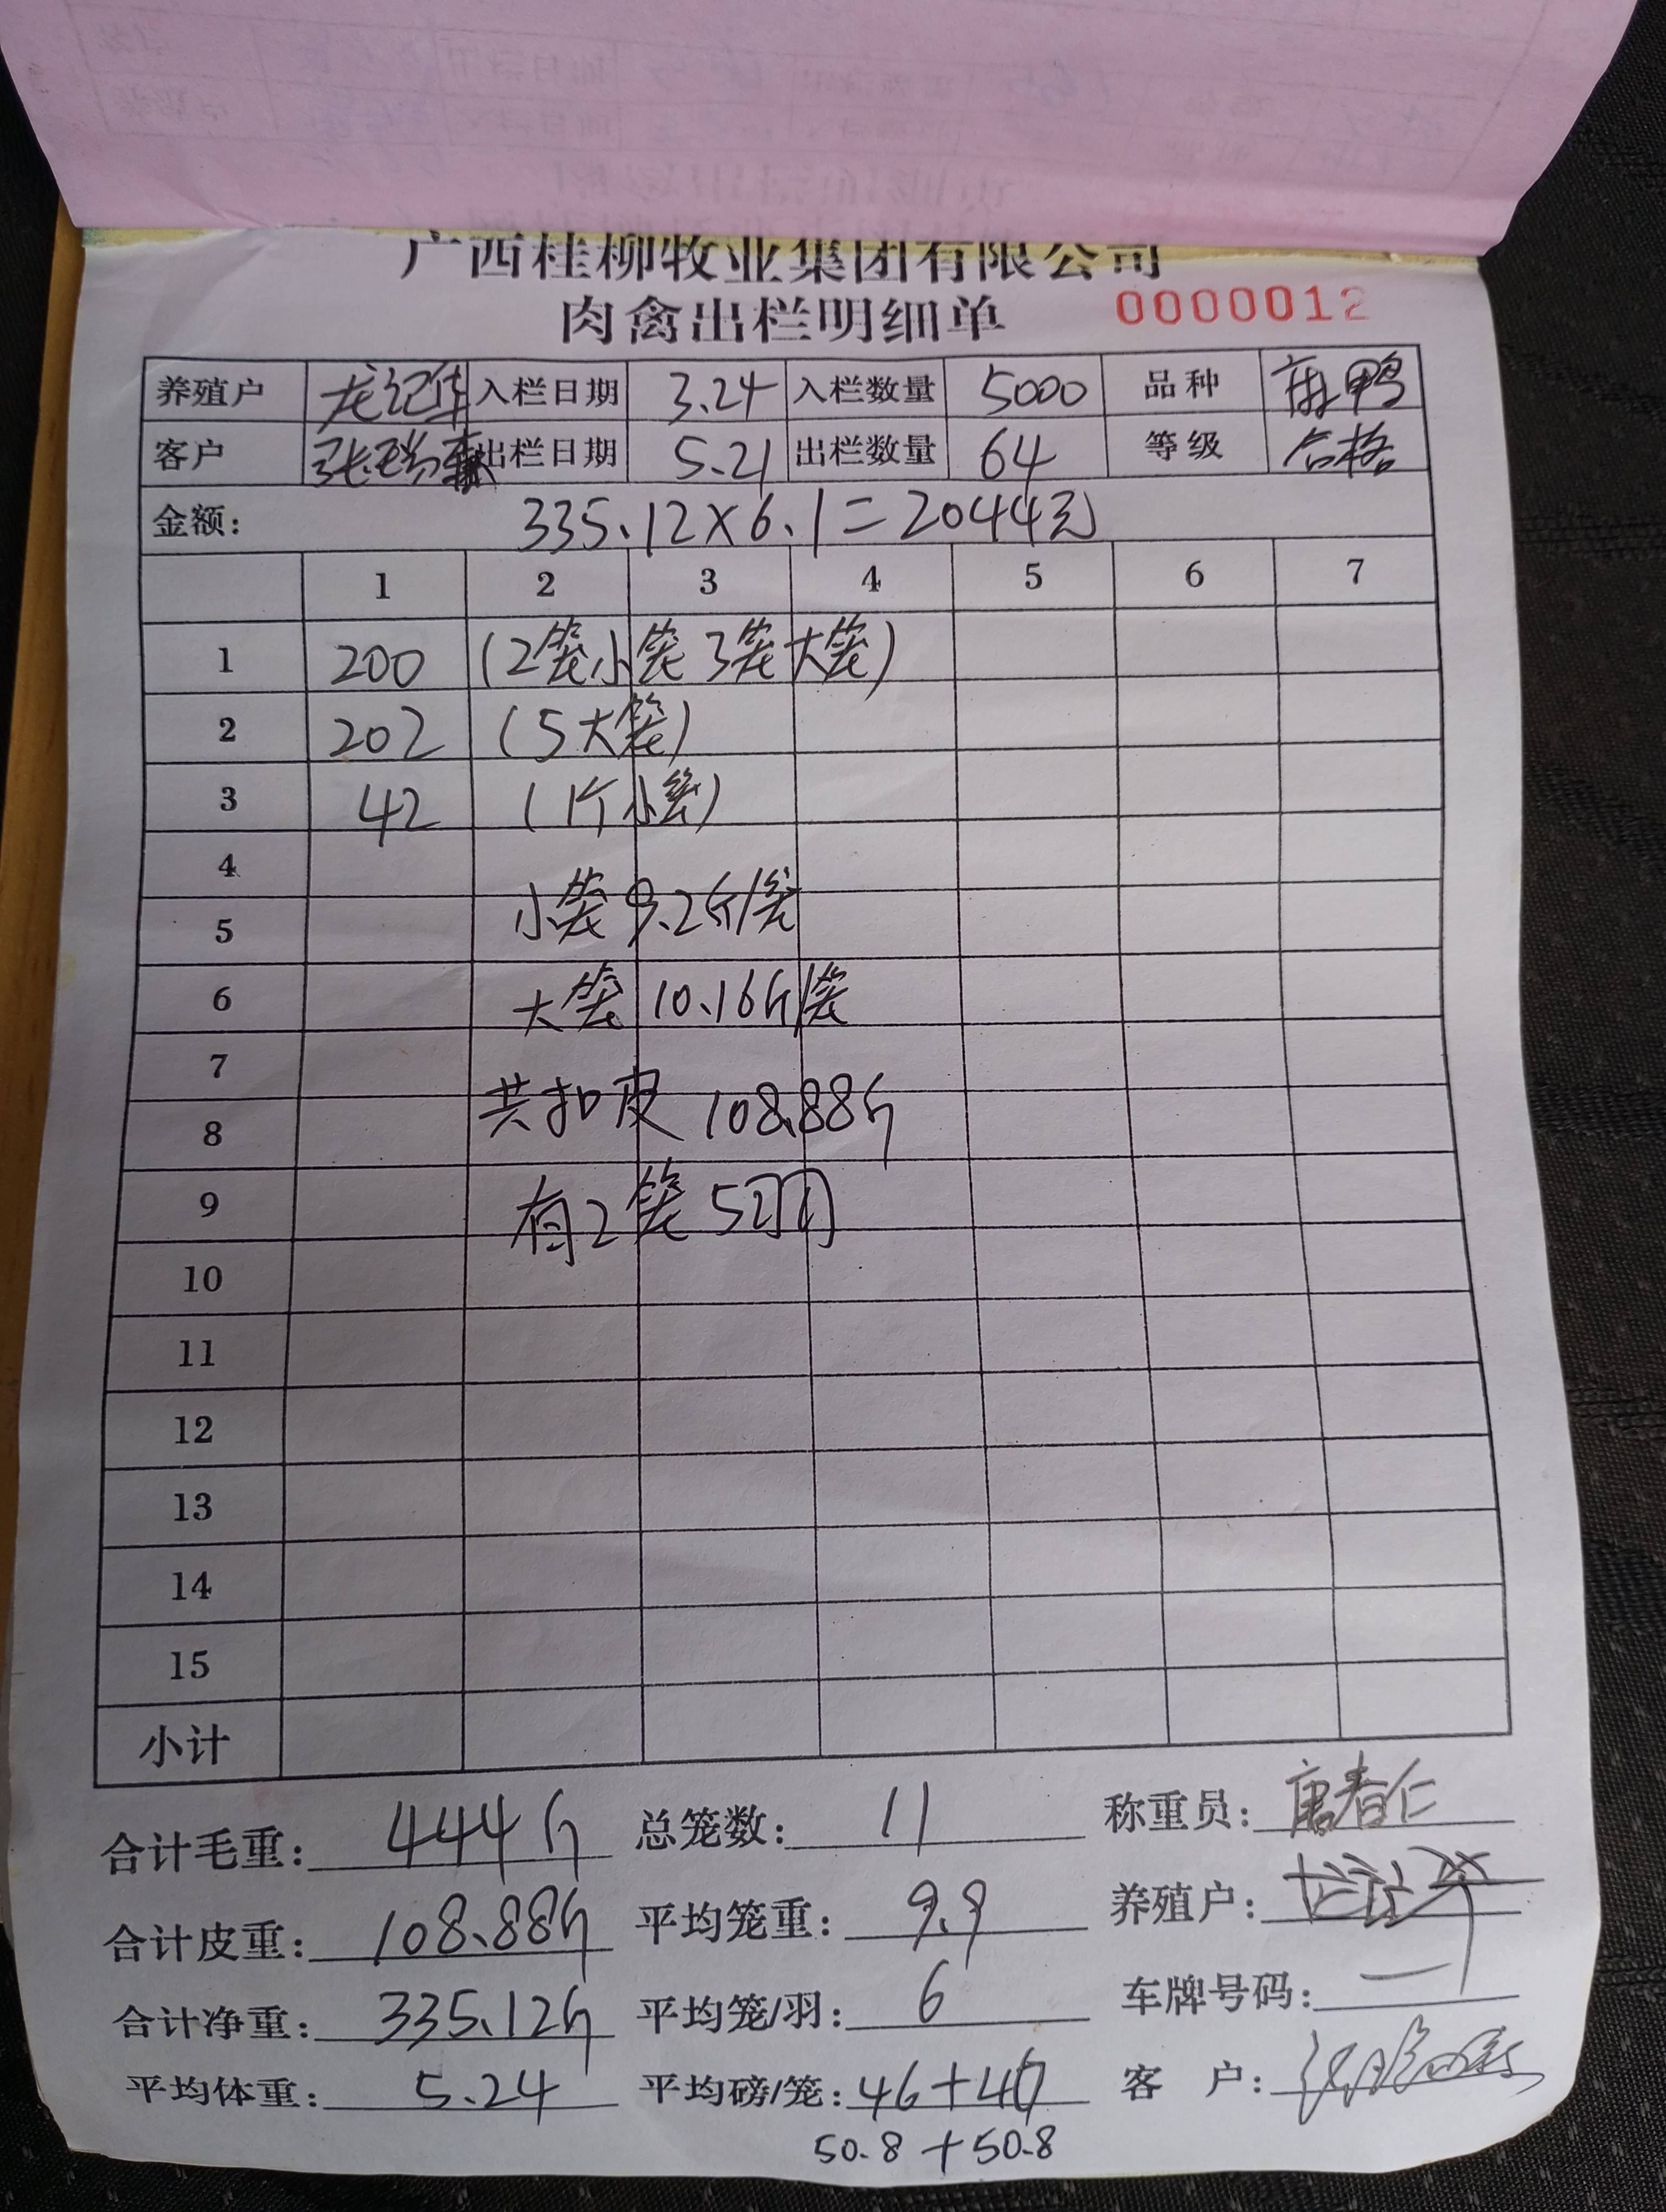 广西桂柳牧业集团有限公司
肉禽出栏明细单 0000012
养殖户 龙记华 入栏日期 3.24 入栏数量 5000 品种 麻鸭
客户 张瑞 出栏日期 5.21 出栏数量 64 等级 合格
金额: 335.12×6.1=2044元
1 2 3 4 5 6 7
1 200 (2笼小笼3笼大笼)
2 202 (5大笼)
3 42 (1个小笼)
4
5 小笼9.2斤/笼
6 大笼10.16斤/笼
7
8 共扣皮108.88斤
9 有2笼5羽
10
11
12
13
14
15
小计
合计毛重: 444斤 总笼数: 11 称重员: 唐春仁
合计皮重: 108.88斤 平均笼重: 9.9 养殖户: 龙记华
合计净重: 335.12斤 平均笼/羽: 6 车牌号码: 一
平均体重: 5.24 平均磅/笼: 46+40 客 户:
50.8+50.8